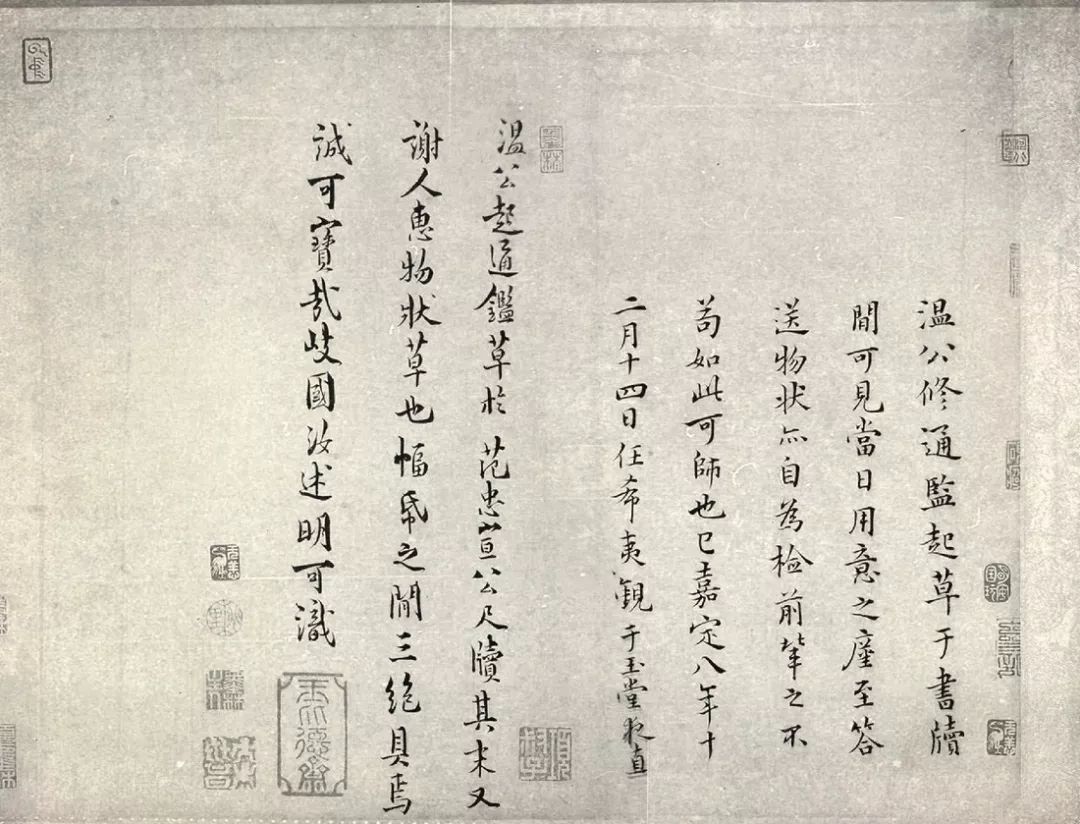 温公修通監起草于書牘
間可見當日用意之䧹至答
送物状亦自為檢前輩之不
苟如此可師也已嘉定八年十
二月十四日任希夷觀于玉堂夜直
温公起通鑑草於范忠宣公尺牘其末又
謝人惠物狀草也幅帋之間三絶具焉
誠可寶哉歧國汝述明可識